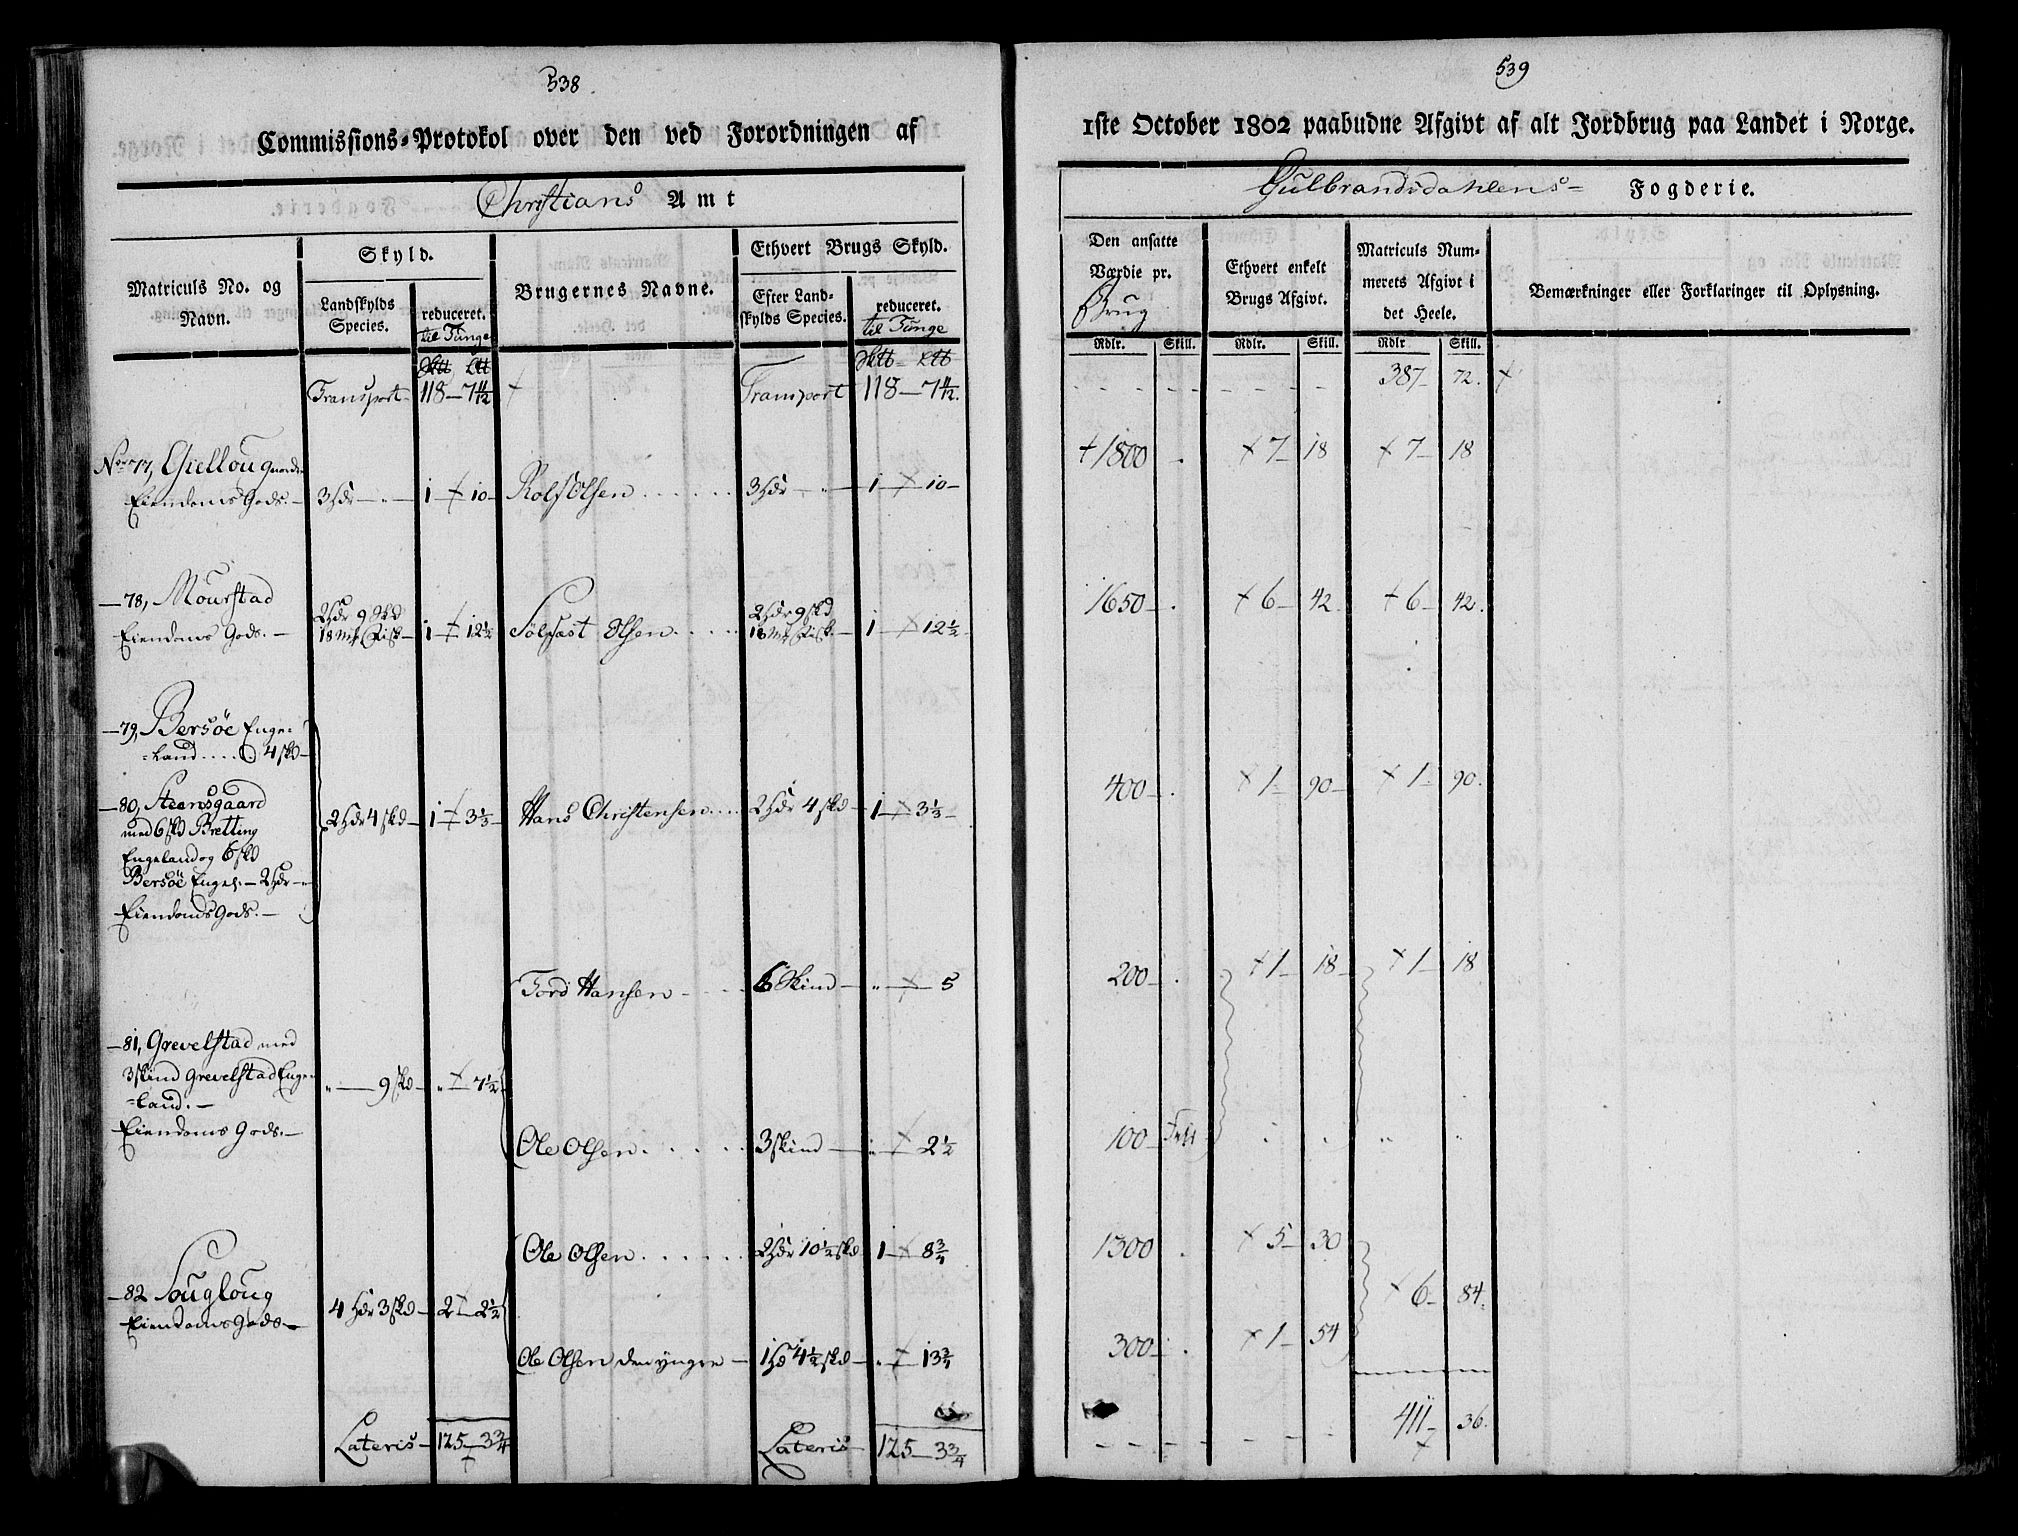 538
Commissions-Protokol over den ved Forordningen af
Christians Amt
Matriculs No. og Navn.
Skyld.
Landskylds Species.
reduceret.
til Tunge
Brugernes Navne.
Ethvert Brugs Skyld.
Efter Landskylds Species.
reduceret.
til Tunge
Transport 118 - 7 4/12 Transport 118 - 7 4/12
No 77, Giellou
Eiendoms Gods. 3 Hdr - 1 - 10 Rolf Olsen 3 Hdr - 1 - 10
78, Mourstad
Eiendoms Gods. 2 Hdr 9 Skd 18 Mk Fisk 1 - 12 1/2 Sølfast Olsen 2 Hdr 9 skd 18 Mk Fisk 1 - 12 1/2
79, Bersöe Enge-
-land 4 skd
80, Steensgaard
med 6 skd Bretting
Engeland og 6 skd
Bersöe Engel. - 2 Hdr
Eiendoms Gods. 2 Hdr 4 skd 1 - 3 1/3 Hans Christensen 2 Hdr 4 skd 1 - 3 1/3
Tord Hansen 6 Skind " 5
81, Grevelstad med
3 skind Grevelstad Enge-
-land.
Eiendoms Gods. " 9 skd " 7 1/2
Ole Olsen 3 skind " 2 1/2
Ole Olsen 2 Hdr 10 1/2 skd 1 - 8 3/4
82 Sougloug
Eiendoms Gods 4 Hdr 3 skd 2 - 2 1/2
Ole Olsen den yngre 1 Hd 4 1/2 skd " 13 3/4
Lateris 125 - 3 3/4 Lateris 125 - 3 3/4
539
1ste October 1802 paabudne Afgivt af alt Jordbrug paa Landet i Norge.
Gulbrandsdahlens Fogderie.
Den ansatte Værdie pr.
Brug
Ethvert enkelt Brugs Afgivt.
Matriculs Nummerets Afgivt i det Heele.
Bemærkninger eller Forklaringer til Oplysning.
Rdlr. Skill. Rdlr. Skill. Rdlr Skill.
387 - 72.
1800 . 7 - 18 7 - 18
1650 . 6 - 42. 6 - 42.
400 . 1 - 90 1 - 90.
200 . 1 - 18 1 - 18
100 " " " "
1300 . 5 - 30
6 - 84.
300 . 1 - 54
411 - 36.